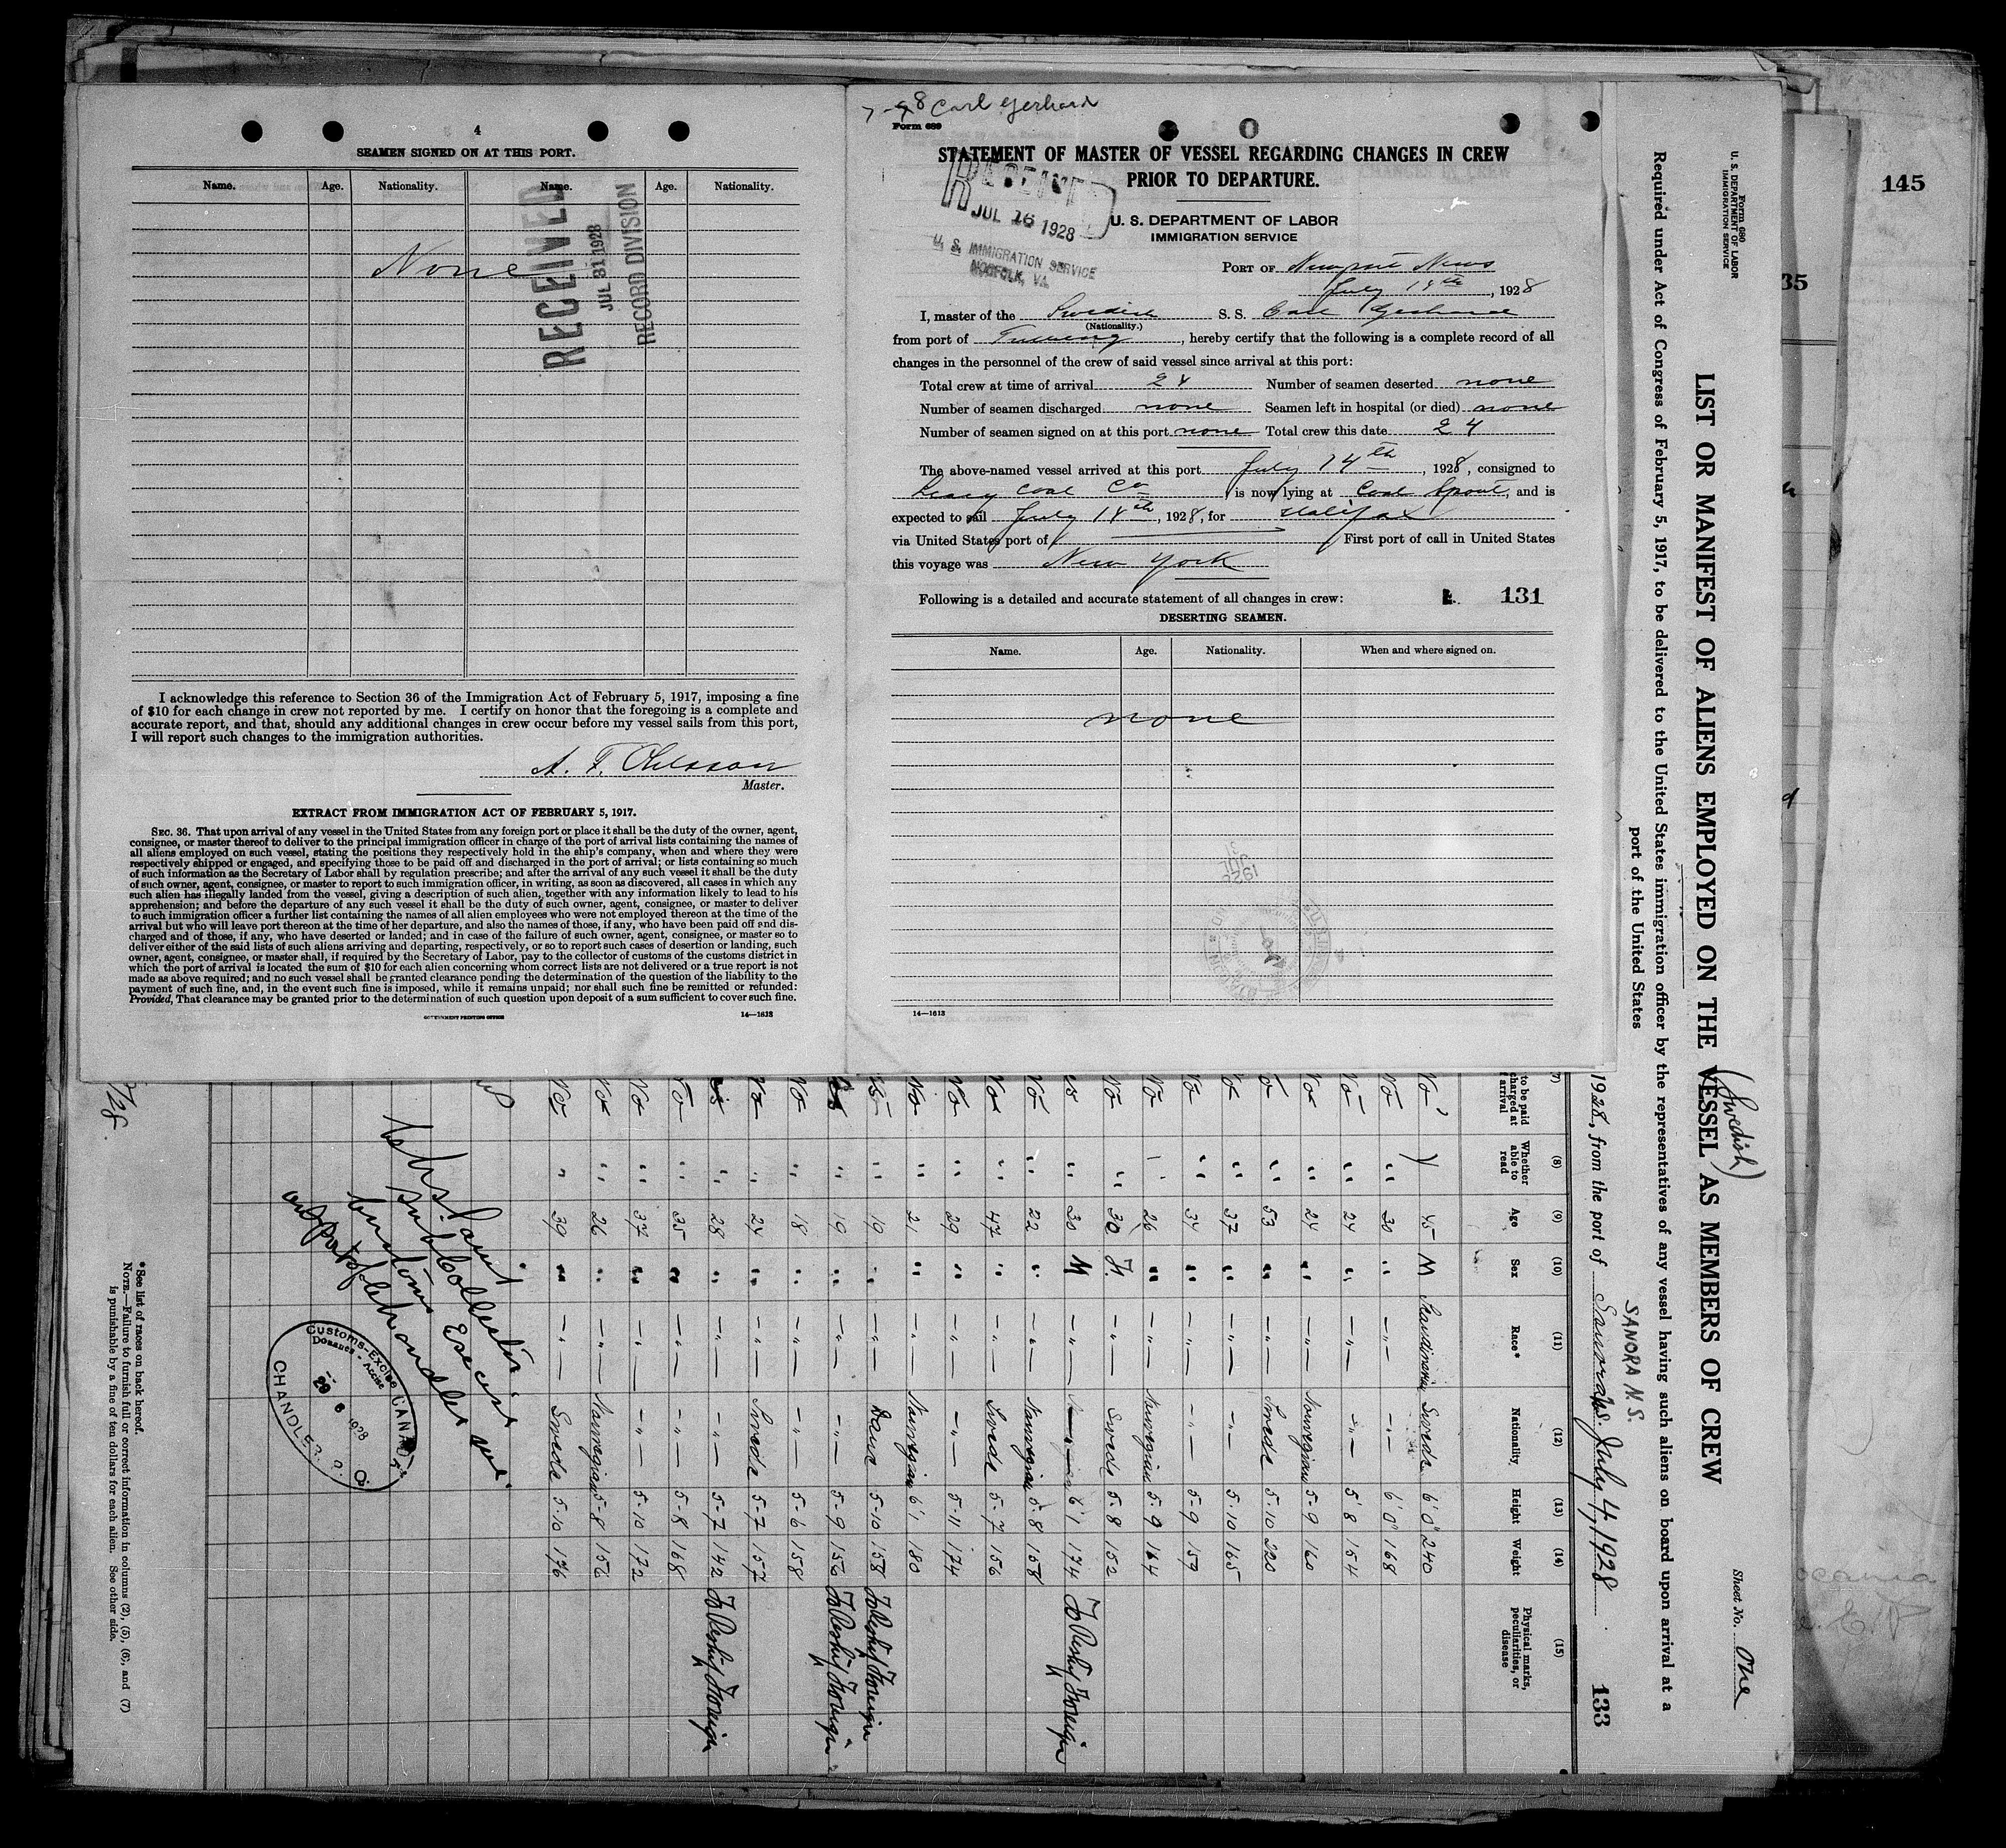 4
SEAMEN SIGNED ON AT THIS PORT.
Name. Age. Nationality. Name. Age. Nationality.
None
RECEIVED
JUL 31 1928
RECORD DIVISION
I acknowledge this reference to Section 36 of the Immigration Act of February 5, 1917, imposing a fine
of $10 for each change in crew not reported by me. I certify on honor that the foregoing is a complete and
accurate report, and that, should any additional changes in crew occur before my vessel sails from this port,
I will report such changes to the immigration authorities.
A. F. Ohlsson
Master.
EXTRACT FROM IMMIGRATION ACT OF FEBRUARY 5, 1917.
SEC. 36. That upon arrival of any vessel in the United States from any foreign port or place it shall be the duty of the owner, agent,
consignee, or master thereof to deliver to the principal immigration officer in charge of the port of arrival lists containing the names of
all aliens employed on such vessel, stating the positions they respectively hold in the ship's company, when and where they were
respectively shipped or engaged, and specifying those to be paid off and discharged in the port of arrival; or lists containing so much
of such information as the Secretary of Labor shall by regulation prescribe; and after the arrival of any such vessel it shall be the duty
of such owner, agent, consignee, or master to report to such immigration officer, in writing, as soon as discovered, all cases in which any
such alien has illegally landed from the vessel, giving a description of such alien, together with any information likely to lead to his
apprehension; and before the departure of any such vessel it shall be the duty of such owner, agent, consignee, or master to deliver
to such immigration officer a further list containing the names of all alien employees who were not employed thereon at the time of the
arrival but who will leave port thereon at the time of her departure, and also the names of those, if any, who have been paid off and dis-
charged and of those, if any, who have deserted or landed; and in case of the failure of such owner, agent, consignee, or master so to
deliver either of the said lists of such aliens arriving and departing, respectively, or so to report such cases of desertion or landing, such
owner, agent, consignee, or master shall, if required by the Secretary of Labor, pay to the collector of customs of the customs district in
which the port of arrival is located the sum of $10 for each alien concerning whom correct lists are not delivered or a true report is not
made as above required; and no such vessel shall be granted clearance pending the determination of the question of the liability to the
payment of such fine, and, in the event such fine is imposed, while it remains unpaid; nor shall such fine be remitted or refunded:
Provided, That clearance may be granted prior to the determination of such question upon deposit of a sum sufficient to cover such fine.
GOVERNMENT PRINTING OFFICE 14—1613
Carl Gerhard
Form 689
STATEMENT OF MASTER OF VESSEL REGARDING CHANGES IN CREW
PRIOR TO DEPARTURE.
RECEIVED
JUL 16 1928
U. S. IMMIGRATION SERVICE
NORFOLK, VA.
U. S. DEPARTMENT OF LABOR
IMMIGRATION SERVICE
PORT OF Newport News
July 14th, 1928
I, master of the Swedish S. S. Carl Gerhard
(Nationality.)
from port of , hereby certify that the following is a complete record of all
changes in the personnel of the crew of said vessel since arrival at this port:
Total crew at time of arrival 24 Number of seamen deserted none
Number of seamen discharged none Seamen left in hospital (or died) none
Number of seamen signed on at this port none Total crew this date 24
The above-named vessel arrived at this port July 14th, 1928, consigned to
Coal Co is now lying at Coal Spout, and is
expected to sail July 14th, 1928, for Halifax
via United States port of First port of call in United States
this voyage was New York
Following is a detailed and accurate statement of all changes in crew: 131
DESERTING SEAMEN.
Name. Age. Nationality. When and where signed on.
none
14—1613
145
35
Form 680
U. S. DEPARTMENT OF LABOR
IMMIGRATION SERVICE
Sheet No. One
(Swedish)
LIST OR MANIFEST OF ALIENS EMPLOYED ON THE VESSEL AS MEMBERS OF CREW
Required under Act of Congress of February 5, 1917, to be delivered to the United States immigration officer by the representatives of any vessel having such aliens on board upon arrival at a
port of the United States
SANORA N.S.
1928, from the port of July 4, 1928 133
(7) to be paid
(8) Whether able to read
(9) Age
(10) Sex
(11) Race*
(12) Nationality
(13) Height
(14) Weight
(15) Physical marks, peculiarities, or disease
No 45 M Scandinavian Swede 6'0" 240
No " 30 " —"— —"— 6'0" 168
No " 24 " —"— —"— 5'8 154
No " 24 " —"— Norwegian 5-9 160
" 53 " —"— Swede 5.10 220
No " 37 " —"— —"— 5.10 165
No " 34 " —"— —"— 5-9 159
No 26 " —"— Norwegian 5.9 164
No " 30 F. Swede 5.8 152
" 30 M —"— 6'1 174 To Reship Foreign
No " 22 " —"— Norwegian 5.8 158
No " 47 " —"— Swede 5.7 156
No " 29 " —"— —"— 5.11 174
No " 21 " —"— Norwegian 6'1 180
" 19 " —"— Dane 5-10 158 To Reship Foreign
" 19 " —"— —"— 5-9 150 To Reship Foreign
No " 18 " —"— —"— 5-6 158
No " 24 " —"— Swede 5-7 157
" 28 " —"— —"— 5-7 142 To Reship Foreign
No " 35 " —"— —"— 5-8 168
No " 37 " —"— —"— 5-10 172
No " 26 " —"— Norwegian 5-8 156
No " 39 " —"— Swede 5.10 176
Sub Collector
Customs Excise
Outport of Chandler Que.
Customs-Excise CANADA
Douanes - Accise
29 6 1928
CHANDLER P. Q.
*See list of races on back hereof.
NOTE.—Failure to furnish full or correct information in columns (2), (5), (6), and (7)
is punishable by a fine of ten dollars for each alien. See other side.